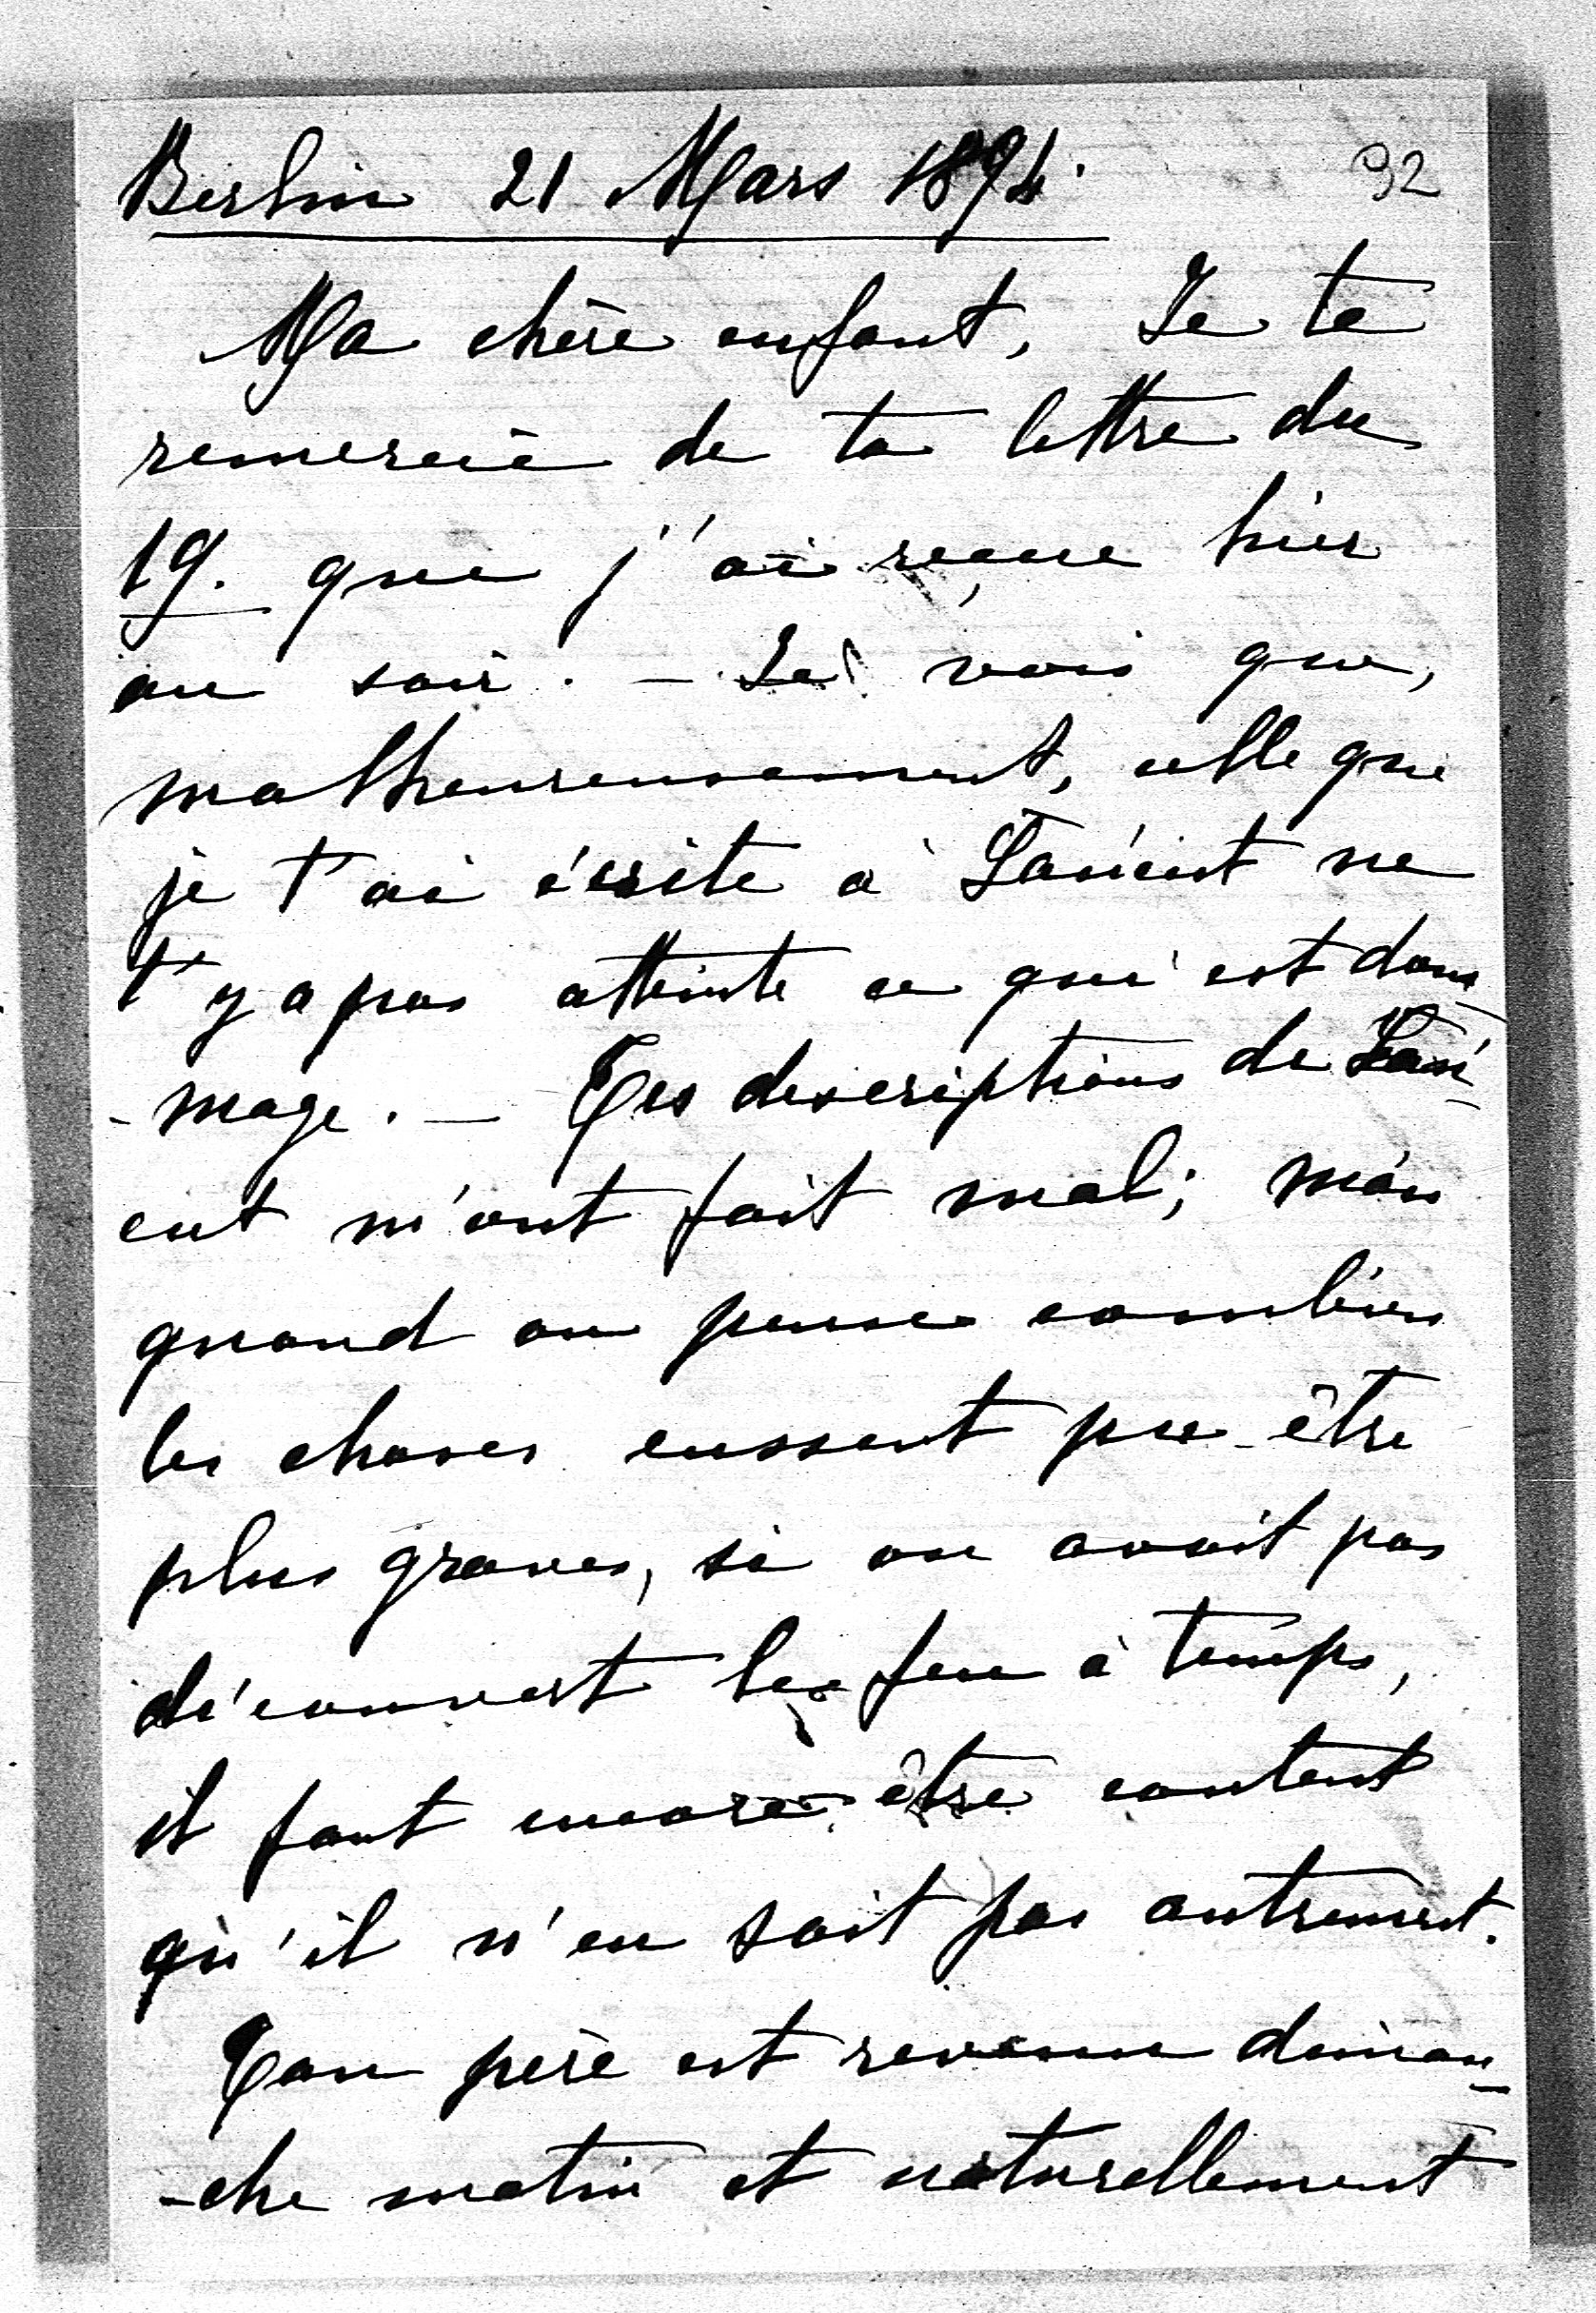 Berlin 21 Mars 1894. 92
Ma chère enfant, Je te
remercie de ta lettre du
19. que j'ai reçue hier
au soir. – Je vois que,
malheureusement, celle que
je t'ai écrite à Łańcut ne
t'y a pas atteinte ce qui est dom
-mage. – Tes descriptions de Łań-
cut m'ont fait mal; mais
quand on pense combien
les choses eussent pu être
plus graves, si on avait pas
découvert le feu à temps,
il faut encore être content
qu'il n'en soit pas autrement.
Ton père est revenu diman-
-che matin et naturellement